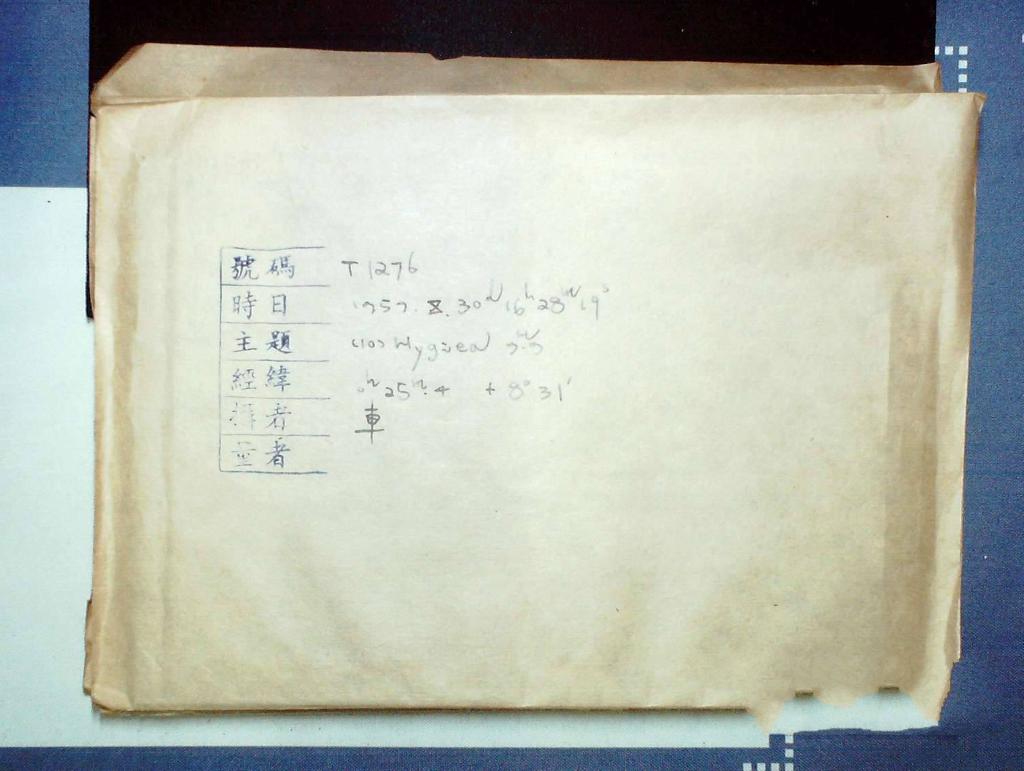 號碼 T1276
時日 1957. X. 30ᵈ 16ʰ 28ᵐ 19ˢ
主題 (10) Hygiea 9ᵐ.9
經緯 0ʰ 25ᵐ.4 +8° 31'
者 車
量者